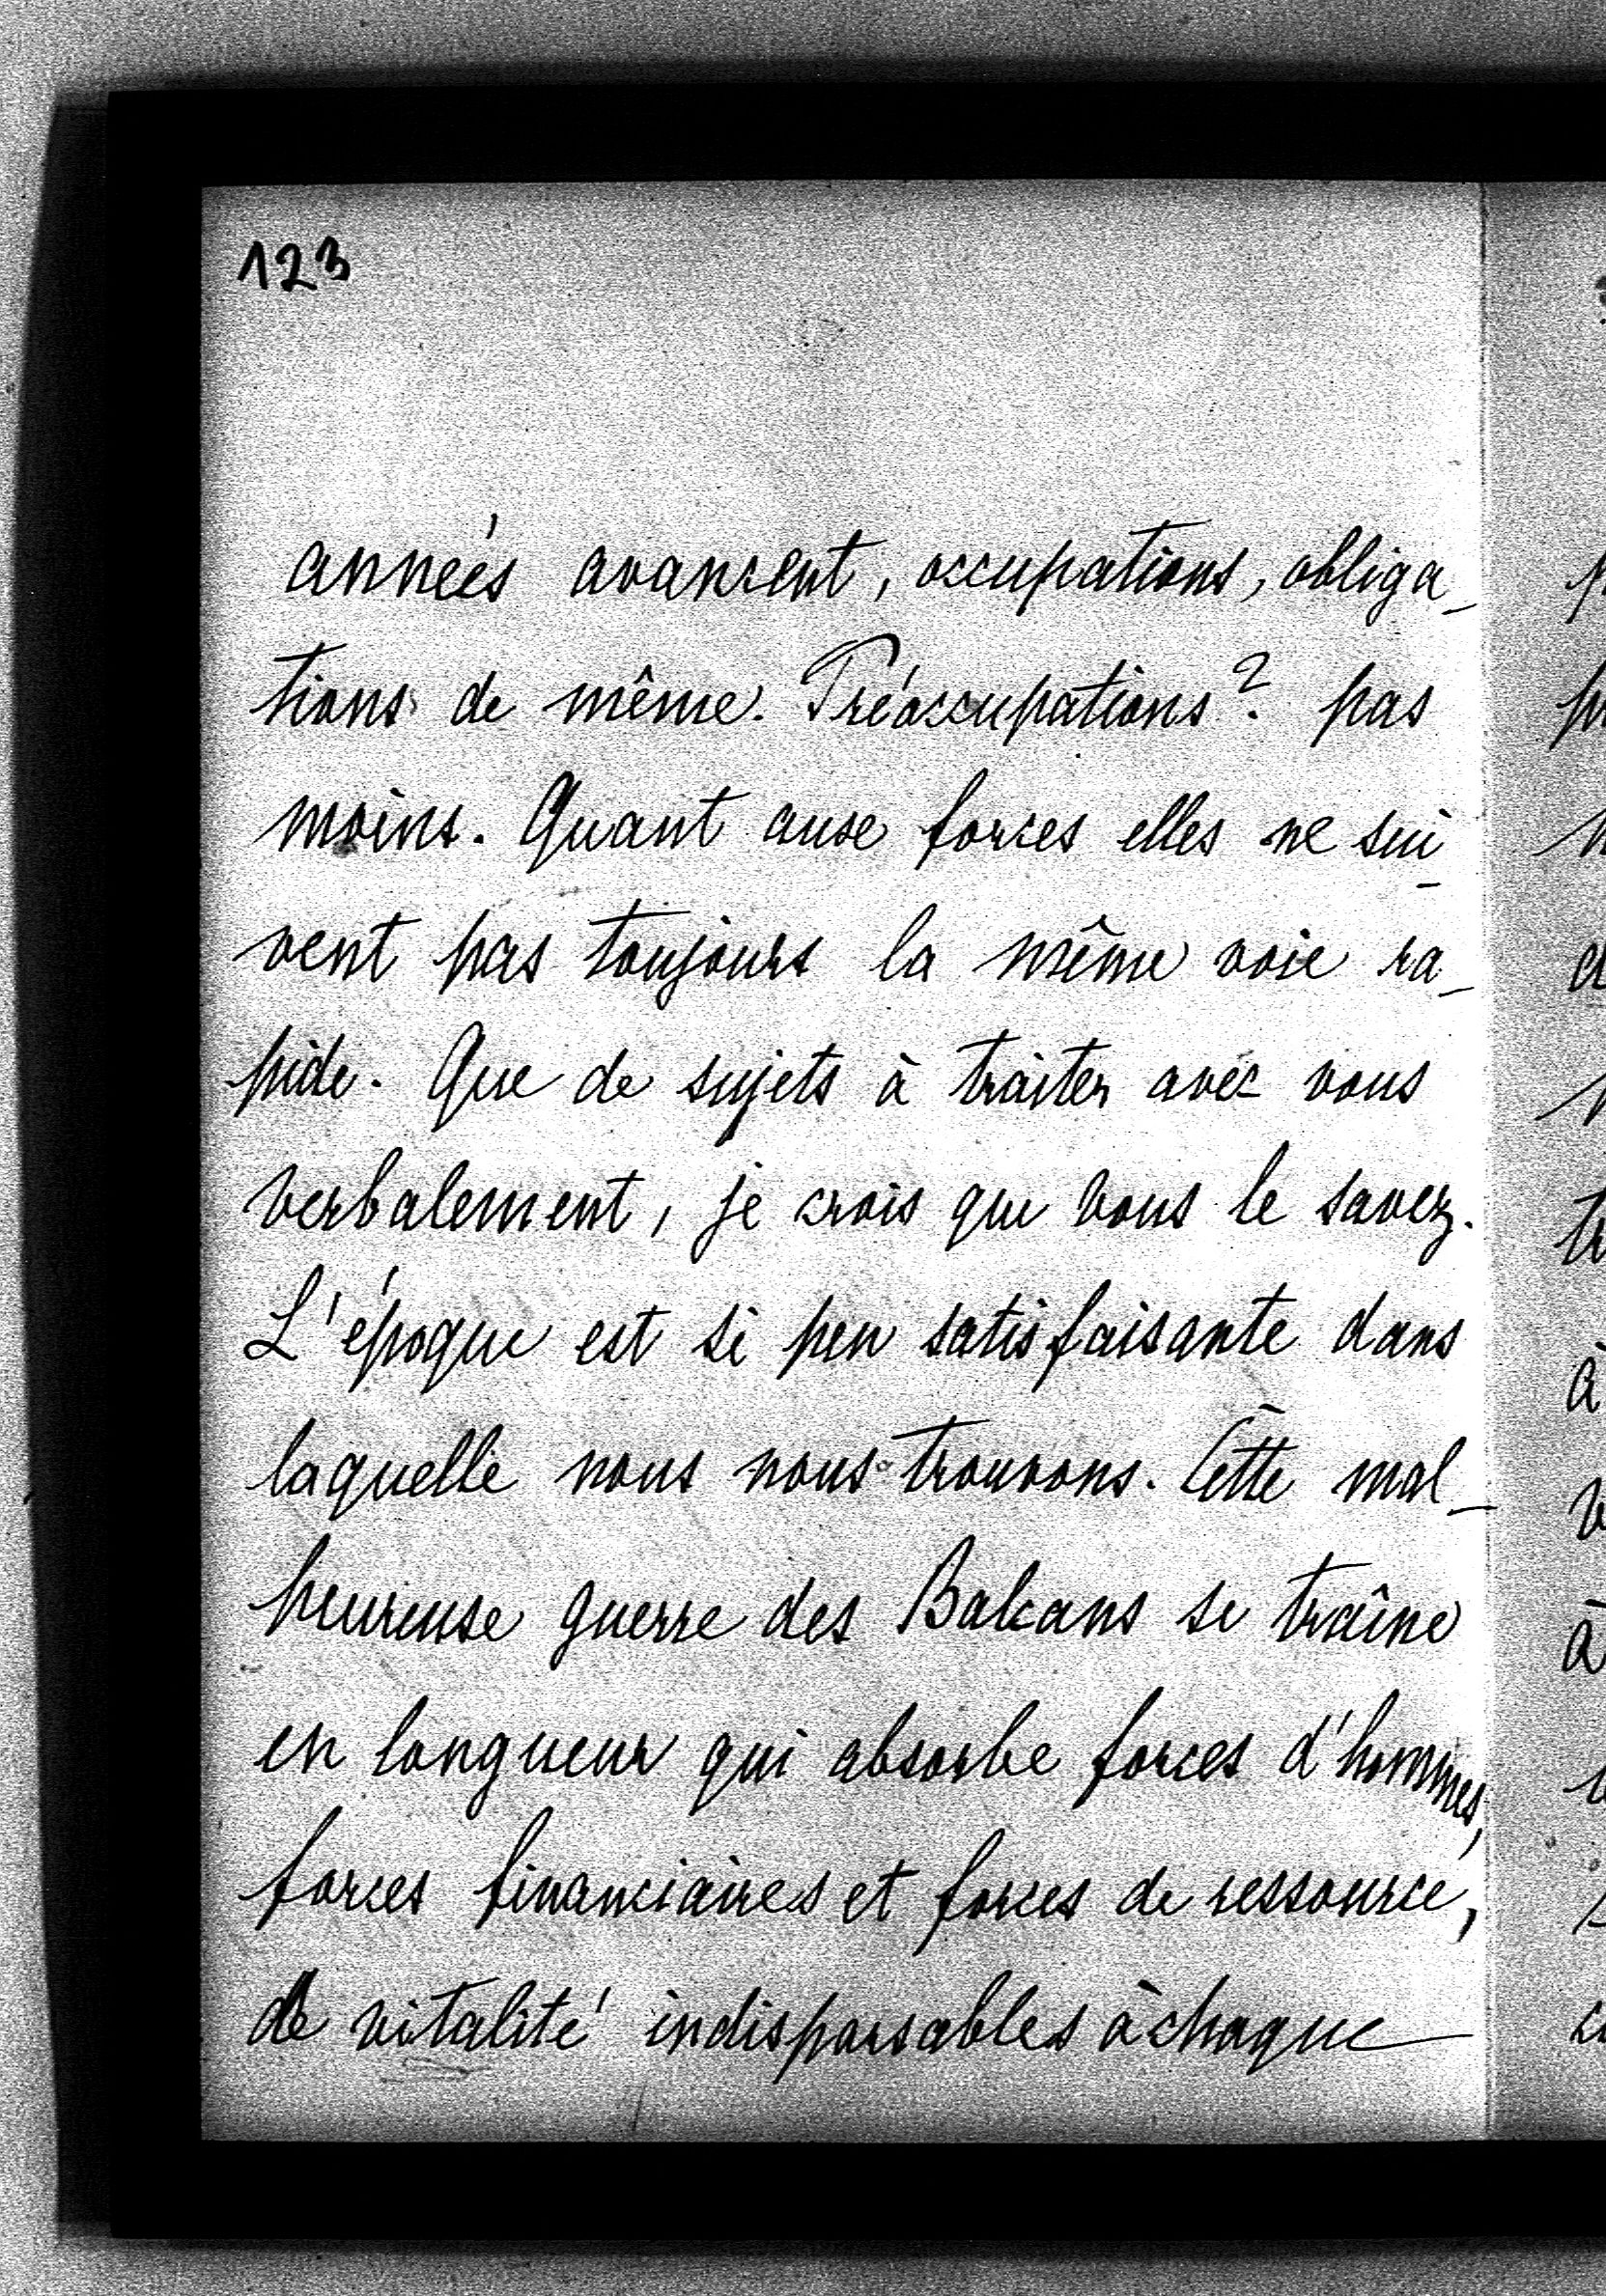 123
années avancent, occupations, obliga_
tions de même. Préoccupations? pas
moins. Quant aux forces elles ne sui_
vent pas toujours la même voie ra_
pide. Que de sujets à traiter avec vous
verbalement, je crois que vous le savez.
L'époque est si peu satisfaisante dans
laquelle nous nous trouvons. Cette mal_
heureuse guerre des Balcans se traîne
en longueur qui absorbe forces d'hommes,
forces financiaires et forces de ressource,
de vitalité indispansables à chaque